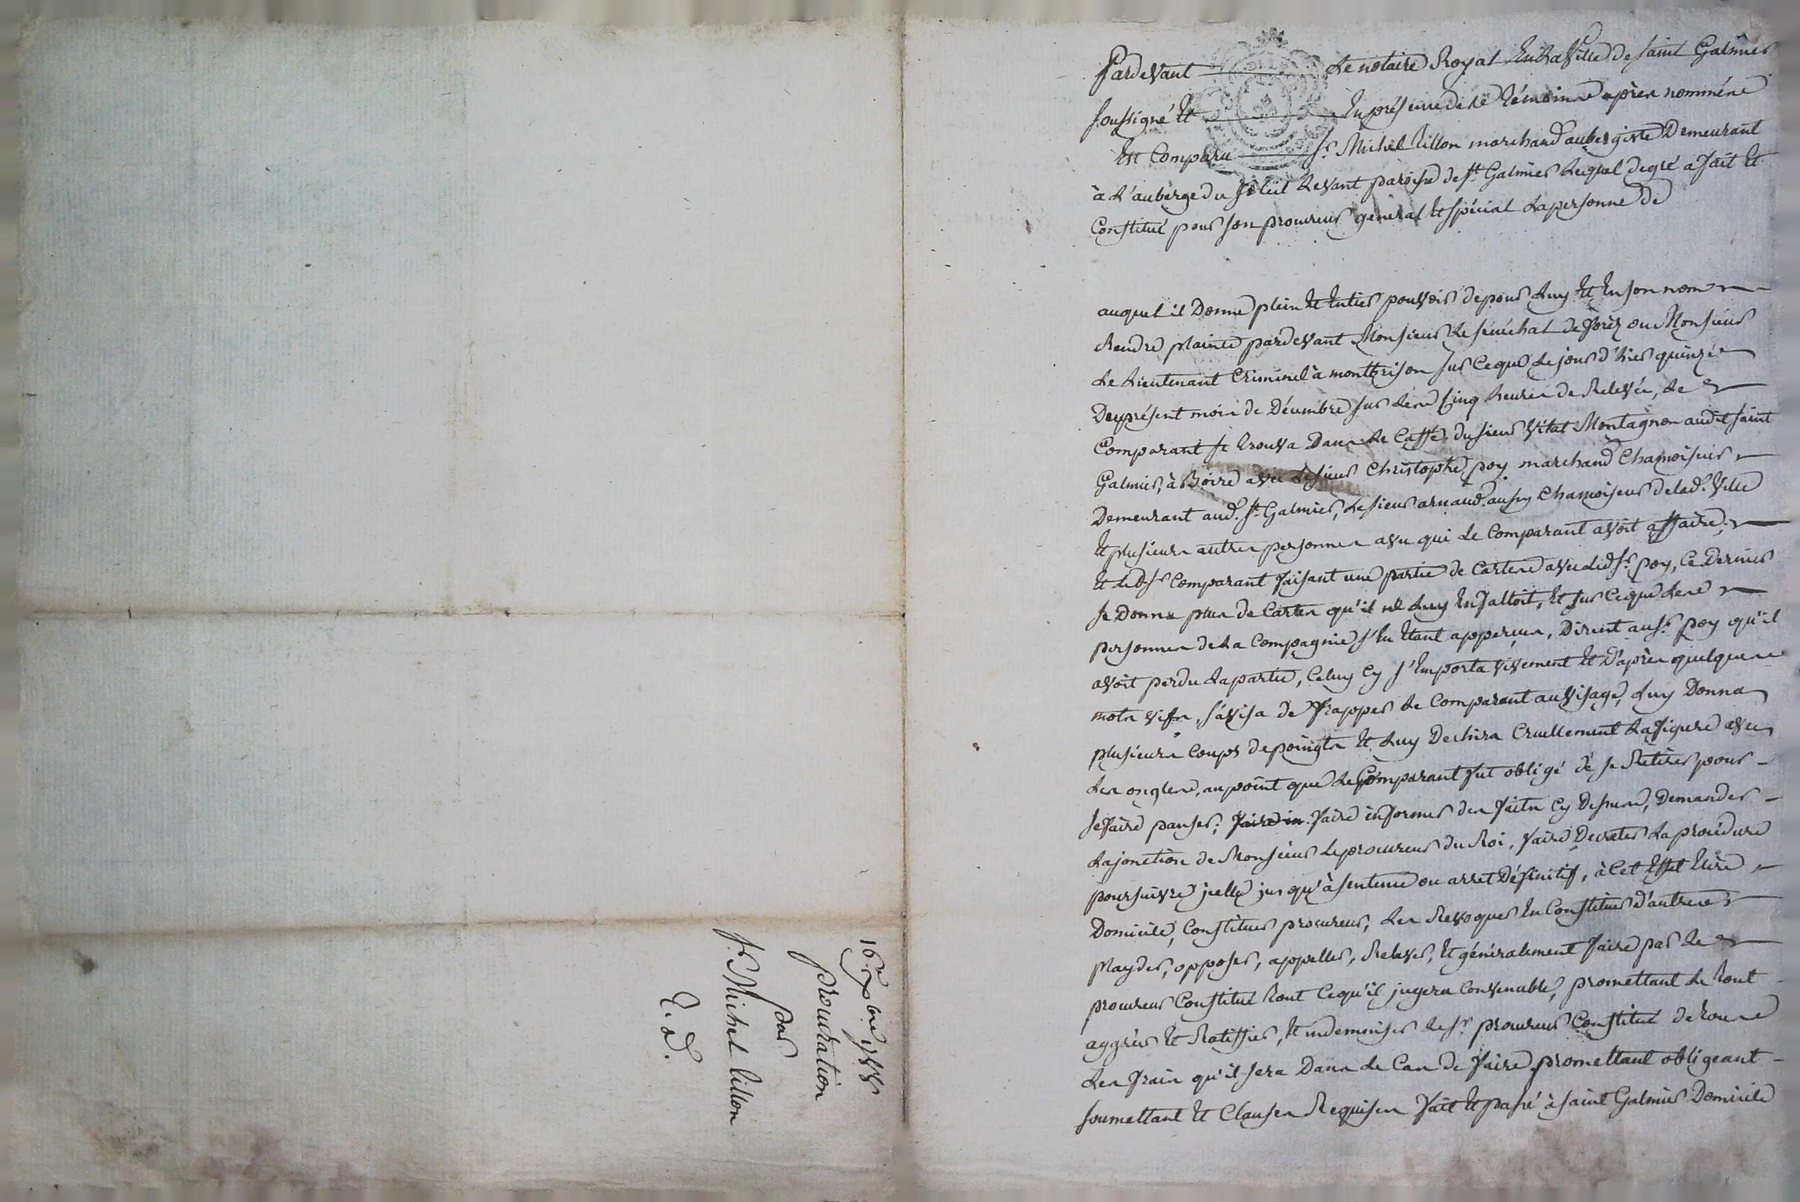 16 xbre 1788
procuration
par
sr Michel Villon
E. d.
Pardevant Le notaire Royal En La Ville de saint Galmier
soussigné Et En présence de Le témoins après nommés
Est Comparu sr Michel Villon marchand aubergiste Demeurant
à L'auberge du soleil Levant paroisse de st Galmier Lequel de gré a fait Et
Constitué pour son procureur general Et spécial La personne de
auquel il Donne plein Et Entier pouvoir de pour Luy Et En son nom
Rendre plainte pardevant Monsieur Le sénéchal de forez ou Monsieur
Le Lieutenant Criminel à montbrison sur Ce que Le jour d'hier quinze
Du présent mois de Décembre sur Les Cinq heures de Relevée, Le
Comparant se trouva Dans Le Caffé du sieur Vital Montagnon audit saint
Galmier, à Boire avec Le sieur Christophe poy marchand Chamoiseur
Demeurant aud. st Galmier, Le sieur arnaud aussy Chamoiseur de lad. Ville
Et plusieurs autres personnes avec qui Le Comparant avoit affaire,
Et Led. sr Comparant faisant une partie de Cartes avec Led. sr poy, Ce Dernier
se Donna plus de Cartes qu'il ne Luy En falloit, Et sur Ce que Les
personnes de La Compagnie s'En Etant apperçues, Dirent au sr poy qu'il
avoit perdu La partie, Celuy Cy s'Emporta vivement Et D'après quelques
mots vifs, s'avisa de frapper Le Comparant au Visage, Luy Donna
plusieurs Coups de poingts Et Luy Dechira Cruellement La figure avec
Les ongles, au point que Le Comparant fut obligé de se Retirer pour
se faire panser, faire in faire informer des faits Cy Dessus, Demander
La jonction de Monsieur Le procureur du Roi, faire Decreter La procédure
poursuivre jcelle jusqu'à sentence ou arret Définitif, à Cet Effet Elire
Domicile, Constituer procureur, Les Revoquer En Constituer d'autres
playder, opposer, appeller, Relever, Et généralement faire par Le
procureur Constitué tout Ce qu'il jugera Convenable, promettant Le tout
aggréer Et Ratiffier, Et indemniser Le sr procureur Constitué de tous
Les frais qu'il sera Dans Le Cas de faire, promettant obligeant
soumettant Et Clauses Requises fait Et passé à saint Galmier Domicile